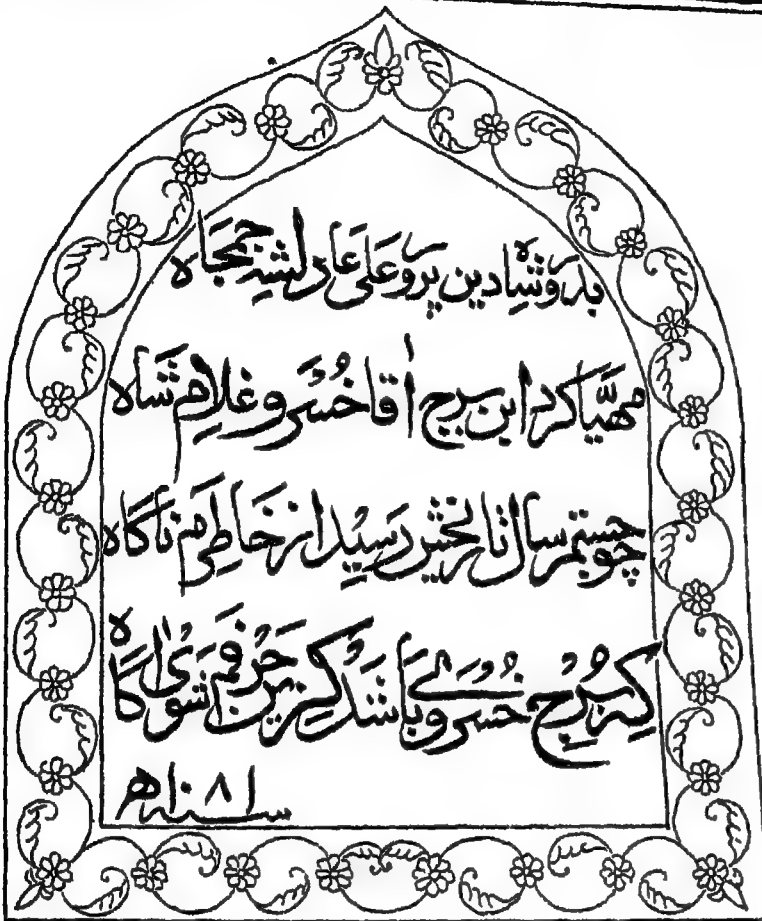 بدور شاه دین پرور علی عادل شه جمجاه
مهیّا کرد این برج آقا خُسرو غلامِ شاه
چو جستم سال تاریخش رسید از خاطرم ناگاه
که برج خسروی باشد کزین حرفم شوی آگاه
سنه ۱۰۸۱ ھ